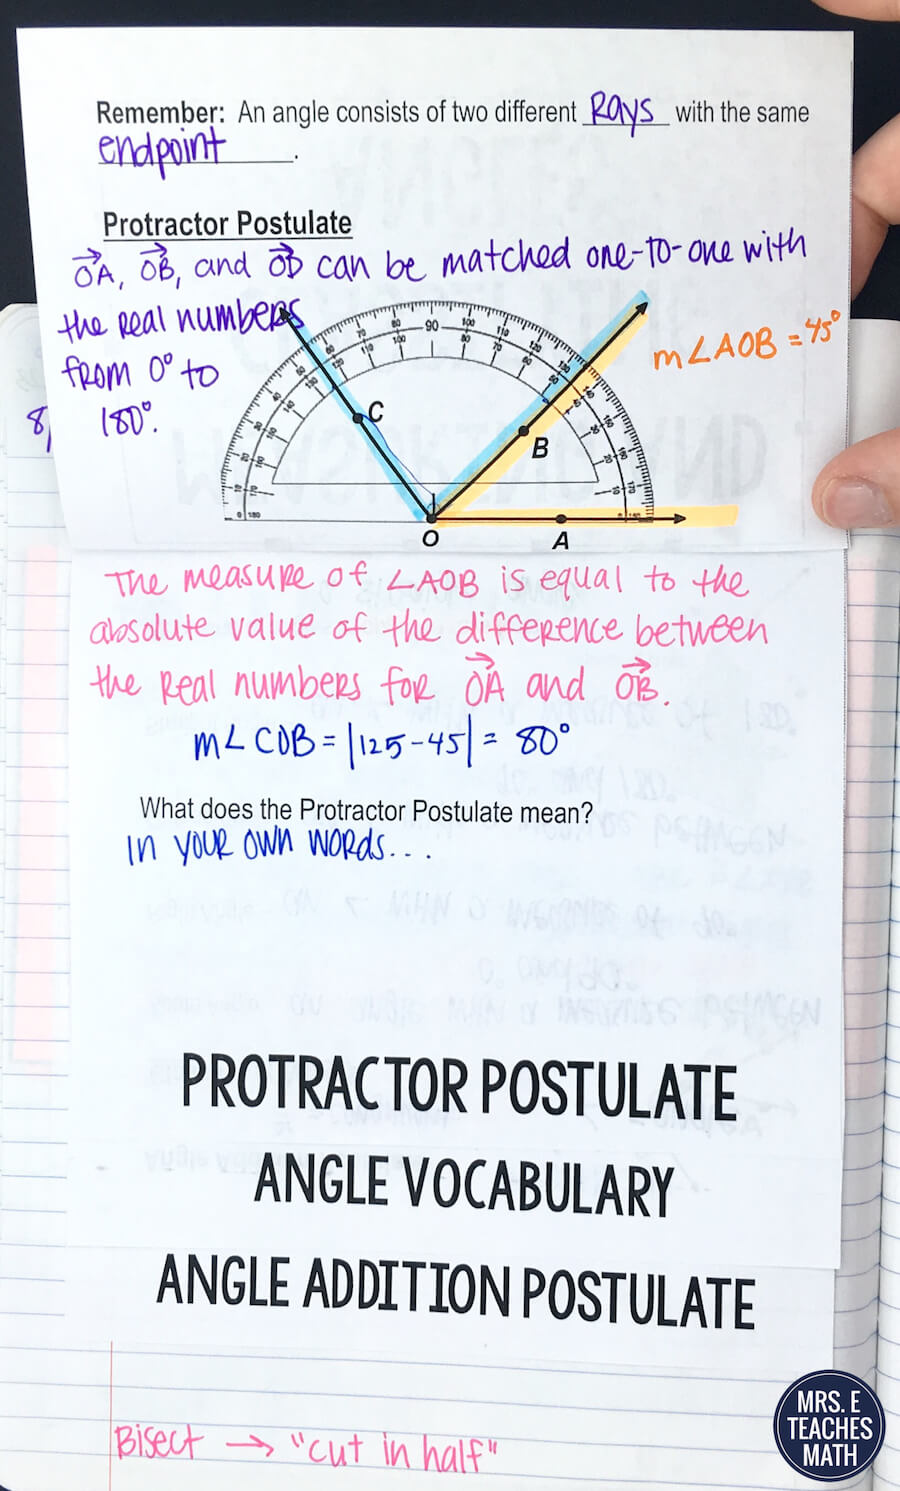 Remember: An angle consists of two different Rays with the same
endpoint.
Protractor Postulate
OA, OB, and OD can be matched one-to-one with
the Real numbers
from 0° to
180°.
8
90
m∠AOB = 45°
C
B
O
A
The measure of ∠AOB is equal to the
absolute value of the difference between
the Real numbers for OA and OB.
m∠COB = |125-45| = 80°
What does the Protractor Postulate mean?
In your own words...
PROTRACTOR POSTULATE
ANGLE VOCABULARY
ANGLE ADDITION POSTULATE
Bisect → "cut in half"
MRS. E
TEACHES
MATH